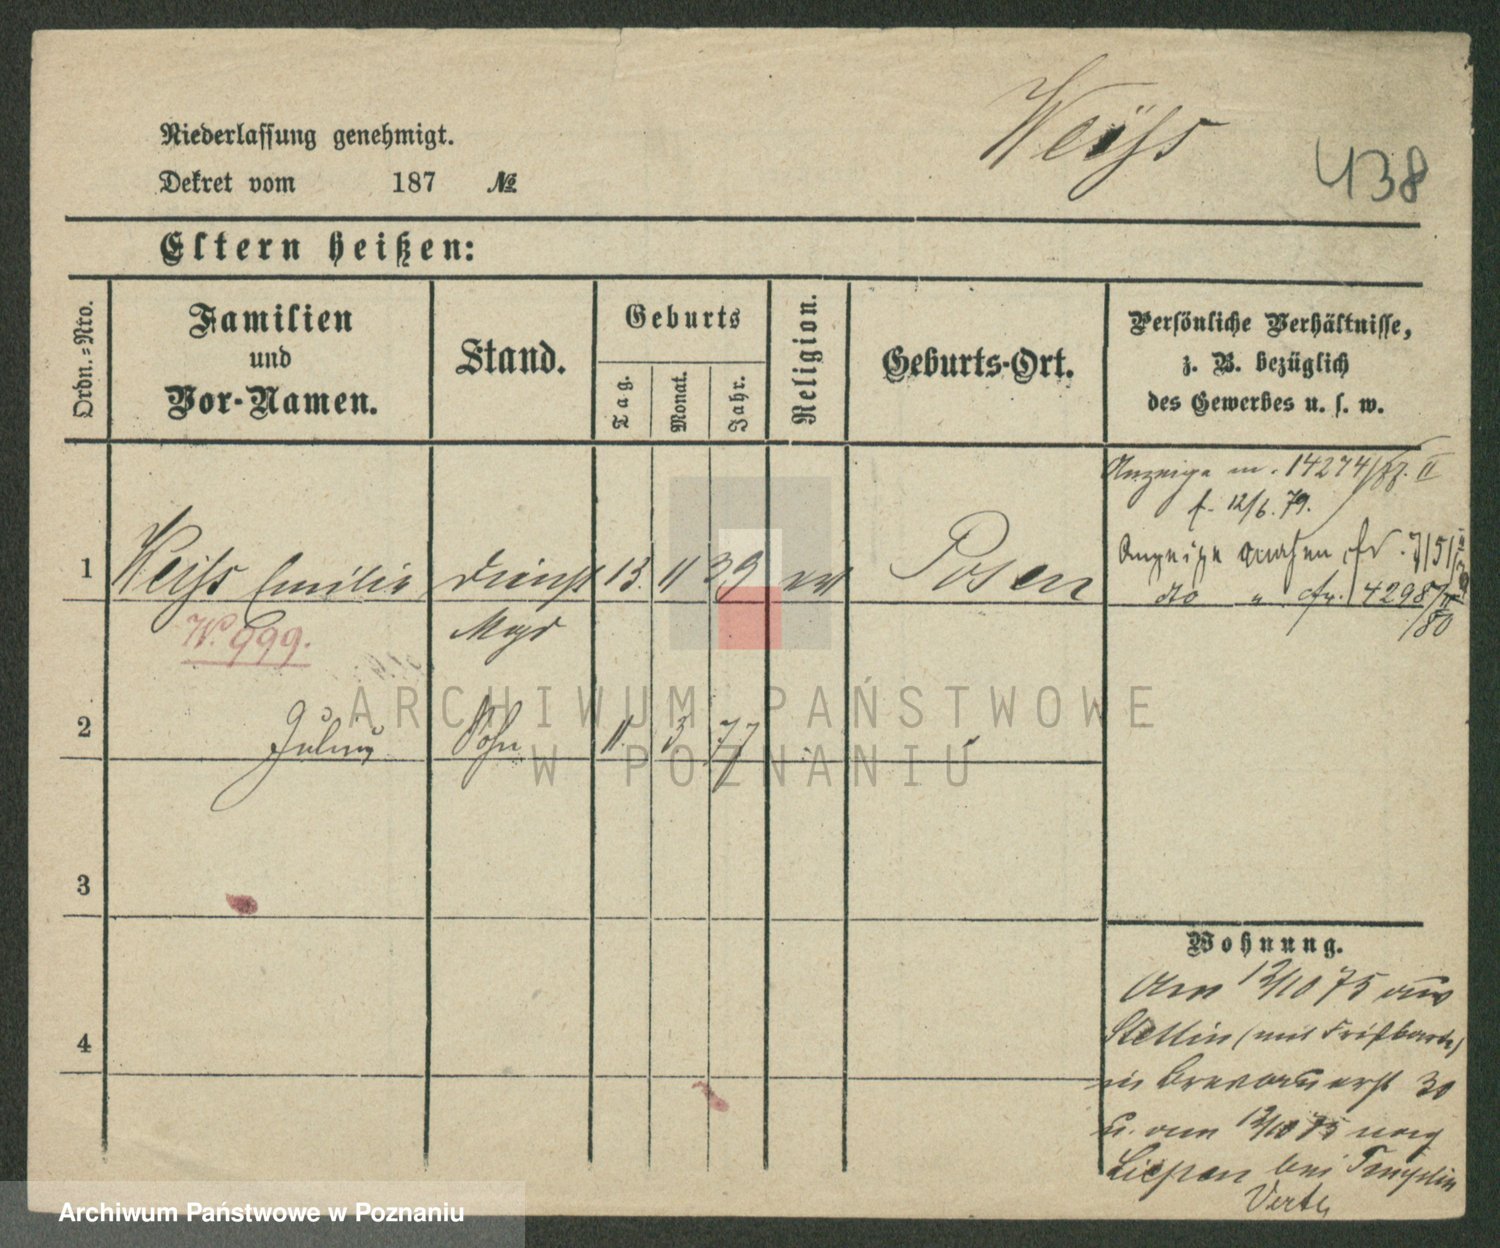 Niederlassung genehmigt.
Weiss
438
Dekret vom 187 №
Eltern heißen:
Ordn.=Nro.
Familien
und
Vor-Namen.
Stand.
Geburts
Tag.
Monat.
Jahr.
Religion.
Geburts-Ort.
Persönliche Verhältnisse,
z. B. bezüglich
des Gewerbes u. s. w.
Anzeige 14274 II
12/6. 79.
1 Weiss Emilie Dienst 13. 11 39 Posen
Magd
W. 999.
dto " cfr. 4298
/80
2 Julius Sohn 11. 3 77
3
4
Wohnung.
Am 12/10 75 aus
Stettin (mit
in 30
u. am 12/10 75 nach
Liepen bei Templin
Verte
ARCHIWUM PAŃSTWOWE
W POZNANIU
Archiwum Państwowe w Poznaniu